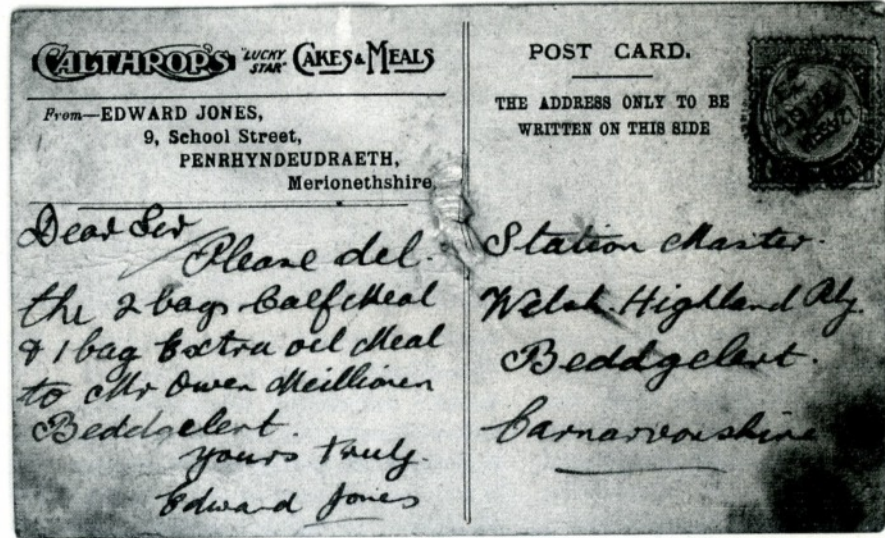 CALTHROP'S "LUCKY STAR" CAKES & MEALS
From—EDWARD JONES,
9, School Street,
PENRHYNDEUDRAETH,
Merionethshire
Dear Sir
Please del.
the 2 bags Calf Meal
& 1 bag Extra oil Meal
to Mr Owen Meillionen
Beddgelert.
yours truly.
Edward Jones
POST CARD.
THE ADDRESS ONLY TO BE
WRITTEN ON THIS SIDE
Station Master.
Welsh Highland Rly.
Beddgelert.
Carnarvonshire